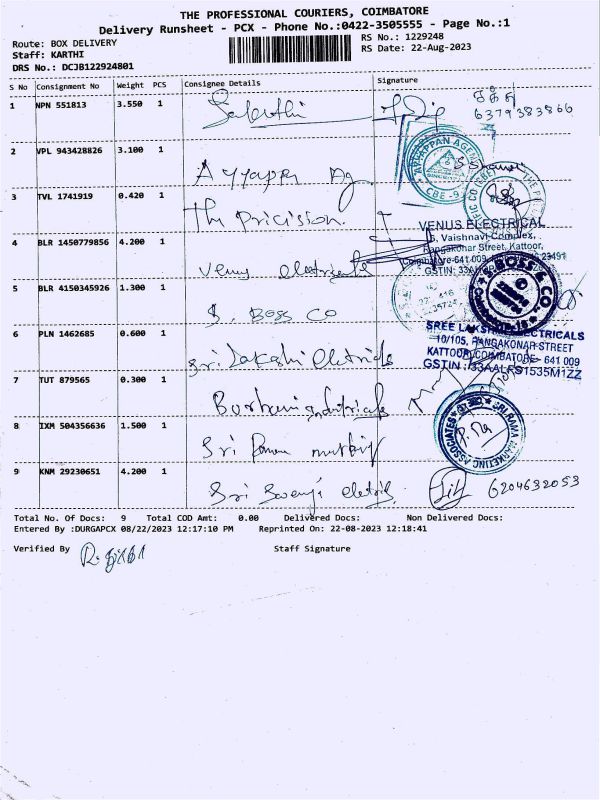 THE PROFESSIONAL COURIERS, COIMBATORE
Delivery Runsheet - PCX - Phone No.:0422-3505555 - Page No.:1
Route: BOX DELIVERY
RS No.: 1229248
Staff: KARTHI
RS Date: 22-Aug-2023
DRS No.: DCJB122924801
S No Consignment No Weight PCS Consignee Details Signature
1 NPN 551813 3.550 1
6379383866
2 VPL 943428826 3.100 1 Ayyappa Ag
AYYAPPAN AGEN
CBE - 9
3 TVL 1741919 0.420 1 The Pricision
4 BLR 1450779856 4.200 1 Venus electricals
VENUS ELECTRICAL
Vaishnavi Complex,
Rangakonar Street, Kattoor,
Coimbatore-641 009
GSTIN: 33A
5 BLR 4150345926 1.300 1 S. BOSS CO
BOSS & CO
6 PLN 1462685 0.600 1 Sri Lakshi Eletricls
SREE LAKSHMI ELECTRICALS
10/105, RANGAKONAR STREET
KATTOOR, COIMBATORE - 641 009
GSTIN : 33AALFS1535M1ZZ
7 TUT 879565 0.300 1
8 IXM 504356636 1.500 1 Sri
SRI RAMA MARKETING ASSOCIATES
9 KNM 29230651 4.200 1 Sri eletric
6204632053
Total No. Of Docs: 9 Total COD Amt: 0.00 Delivered Docs: Non Delivered Docs:
Entered By :DURGAPCX 08/22/2023 12:17:10 PM Reprinted On: 22-08-2023 12:18:41
Verified By
Staff Signature